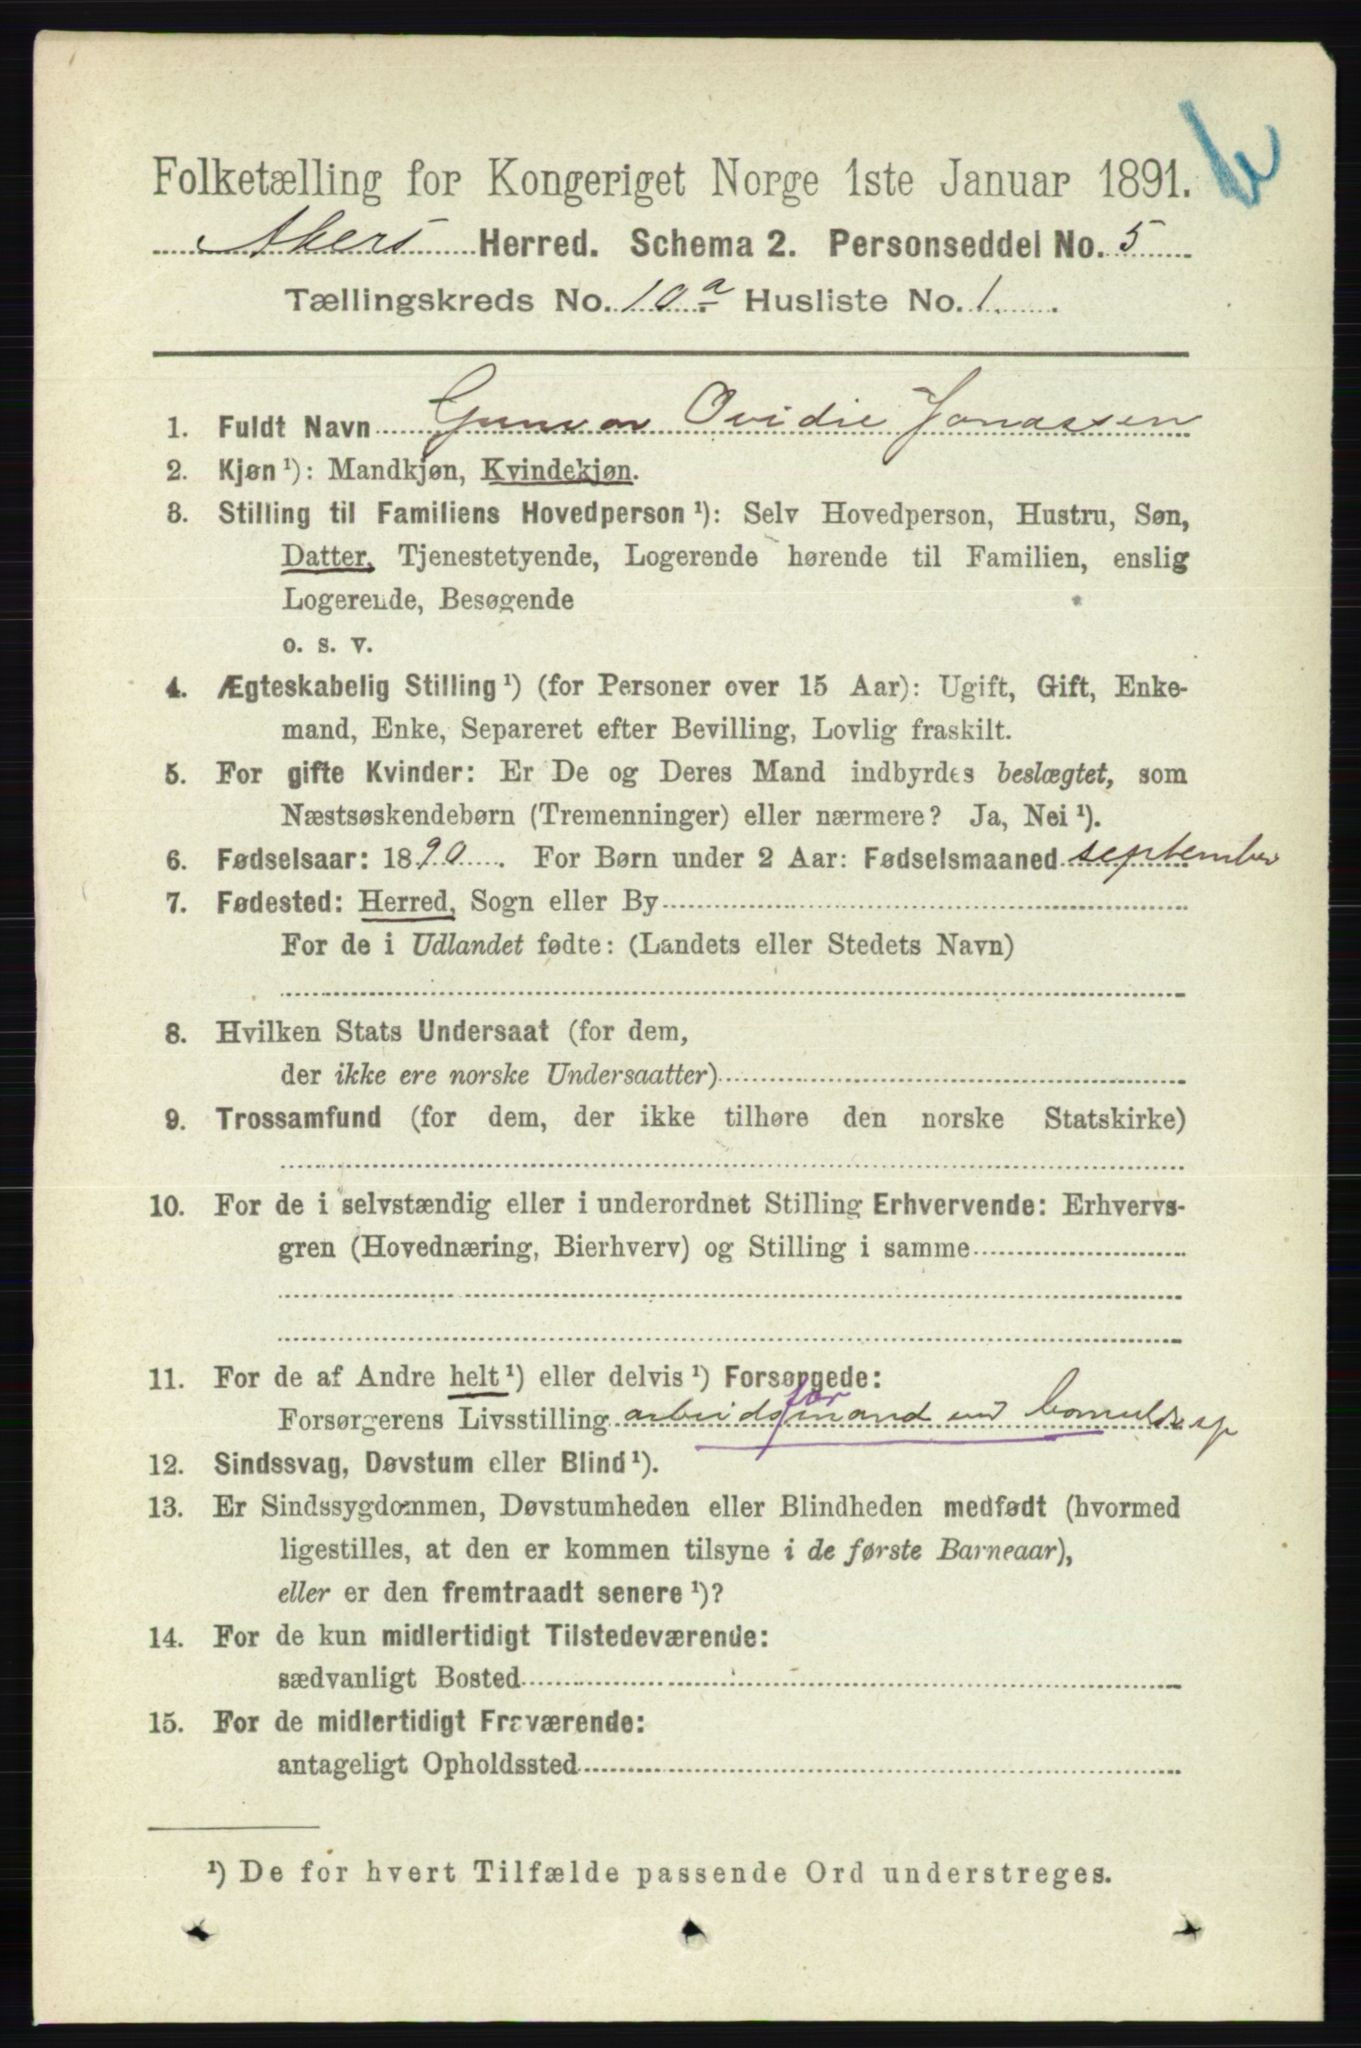 Folketælling for Kongeriget Norge 1ste Januar 1891.
Akers Herred. Schema 2. Personseddel No. 5
Tællingskreds No. 10 a Husliste No. 1.
1. Fuldt Navn Gunvor Ovidie Jonassen
2. Kjøn ¹): Mandkjøn, Kvindekjøn.
3. Stilling til Familiens Hovedperson ¹): Selv Hovedperson, Hustru, Søn,
Datter, Tjenestetyende, Logerende hørende til Familien, enslig
Logerende, Besøgende
o. s. v.
4. Ægteskabelig Stilling ¹) (for Personer over 15 Aar): Ugift, Gift, Enke-
mand, Enke, Separeret efter Bevilling, Lovlig fraskilt.
5. For gifte Kvinder: Er De og Deres Mand indbyrdes beslægtet, som
Næstsøskendebørn (Tremenninger) eller nærmere? Ja, Nei ¹).
6. Fødselsaar: 1890. For Børn under 2 Aar: Fødselsmaaned september
7. Fødested: Herred, Sogn eller By
For de i Udlandet fødte: (Landets eller Stedets Navn)
8. Hvilken Stats Undersaat (for dem,
der ikke ere norske Undersaatter)
9. Trossamfund (for dem, der ikke tilhøre den norske Statskirke)
10. For de i selvstændig eller i underordnet Stilling Erhvervende: Erhvervs-
gren (Hovednæring, Bierhverv) og Stilling i samme
11. For de af Andre helt ¹) eller delvis ¹) Forsørgede:
far
Forsørgerens Livsstilling arbeidsmand ved bomuldssp
12. Sindssvag, Døvstum eller Blind ¹).
13. Er Sindssygdommen, Døvstumheden eller Blindheden medfødt (hvormed
ligestilles, at den er kommen tilsyne i de første Barneaar),
eller er den fremtraadt senere ¹)?
14. For de kun midlertidigt Tilstedeværende:
sædvanligt Bosted
15. For de midlertidigt Fraværende:
antageligt Opholdssted
¹) De for hvert Tilfælde passende Ord understreges.